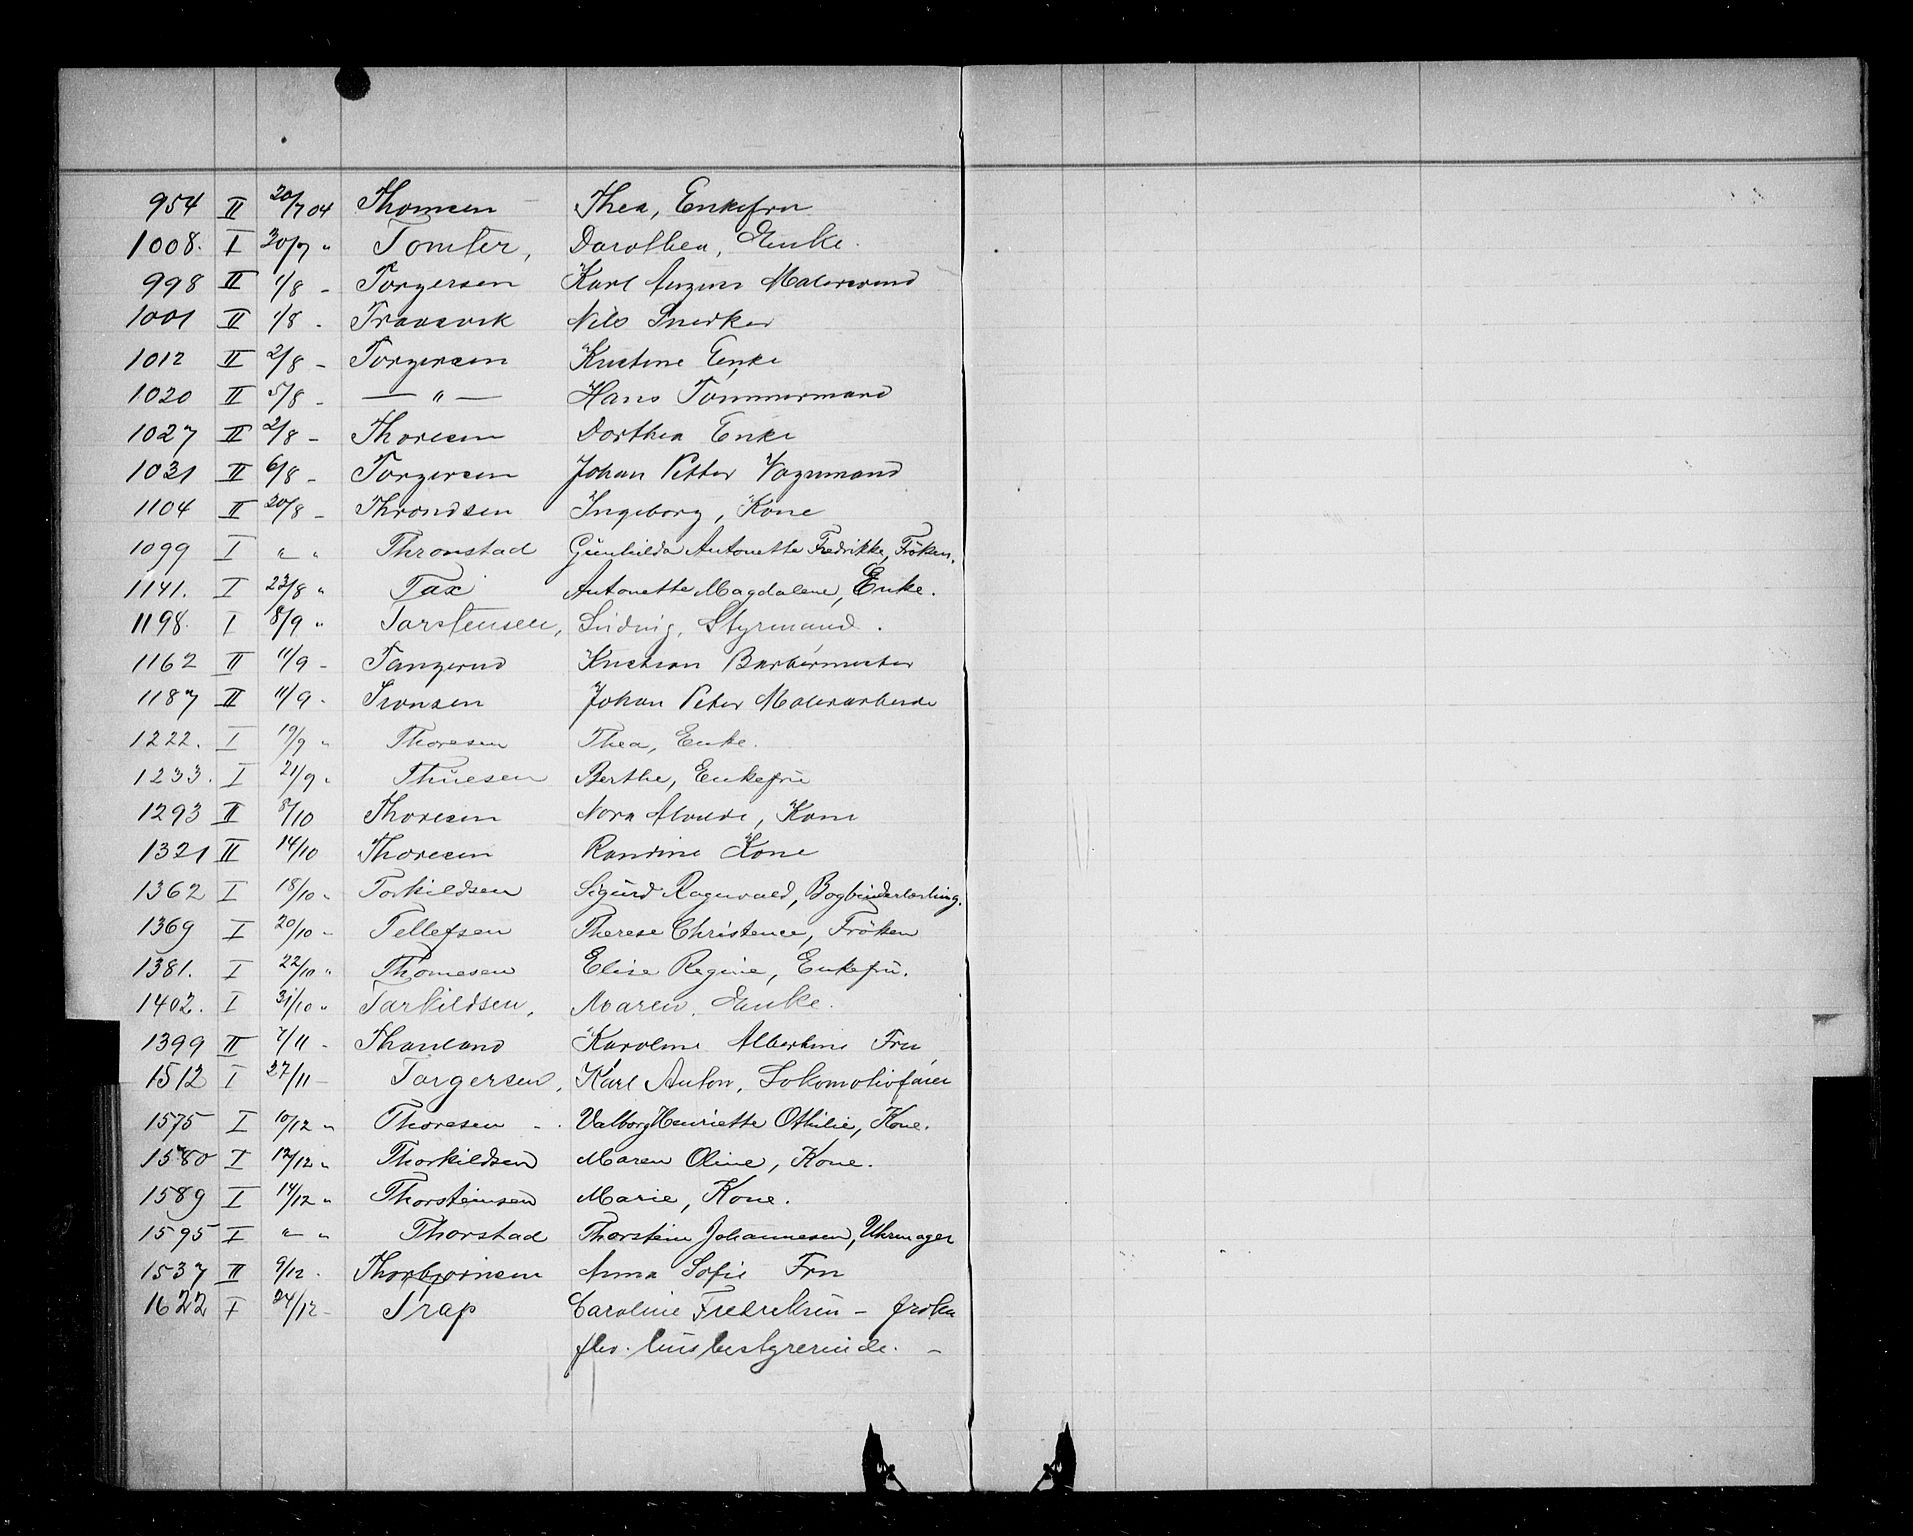 954 II 20/7 04 Thomsen Thea, Enkefru
1008. I 30/7 " Tomter, Dorothea, Enke.
998 II 1/8 - Torgersen Karl Malersvend
1001 II 1/8 - Nils Snedker
1012 II 2/8 - Torgersen Kristine Enke
1020 II 5/8 - — " — Hans Tømmermand
1027 II 2/8 - Thoresen Dorthea Enke
1031 II 6/8 - Torgersen Johan Petter Vognmand
1104 II 20/8 - Throndsen Ingeborg, Kone
1099 I " " Thronstad Gunhilda Antonette Fredrikke, Frøken.
1141. I 23/8 " Tax Antonette Magdalene, Enke.
1198. I 8/9 " Torstensen, Ludvig, Styrmand.
1162 II 11/9 - Tangerud Kristian Barbermester
1187 II 11/9 - Tronsen Johan Peter
1222. I 19/9 " Thoresen Thea, Enke.
1233. I 21/9 " Thuesen Berthe, Enkefru
1293 II 8/10 Thoresen Nora Kone
1321 II 14/10 Thoresen Randine Kone
1362 I 18/10 " Torkildsen Sigurd Ragnvald, Bogbinderlærling.
1369 I 20/10 - Tellefsen Therese Christence, Frøken
1381. I 22/10 " Thomesen Elise Regine, Enkefru.
1402. I 31/10 " Torkildsen, Maren, Enke.
1399 II 2/11 - Thauland Karoline Albertine Fru
1512 I 27/11 - Torgersen, Karl Anton, Lokomotivfører
1575 I 10/12 " Thoresen - . Valborg Henriette Othilie, Kone.
1580 I 12/12 " Thorkildsen Maren Oline, Kone.
1589 I 14/12 " Thorsteinsen Marie, Kone.
1595 I " " Thorstad Thorstein Johannesen, Uhrmager
1537 II 9/12 - Thorbjørnsen Anna Sofie Fru
1622 I 24/12 - Trap Caroline Fredriksen - frøken
fhv. husbestyrerinde. -